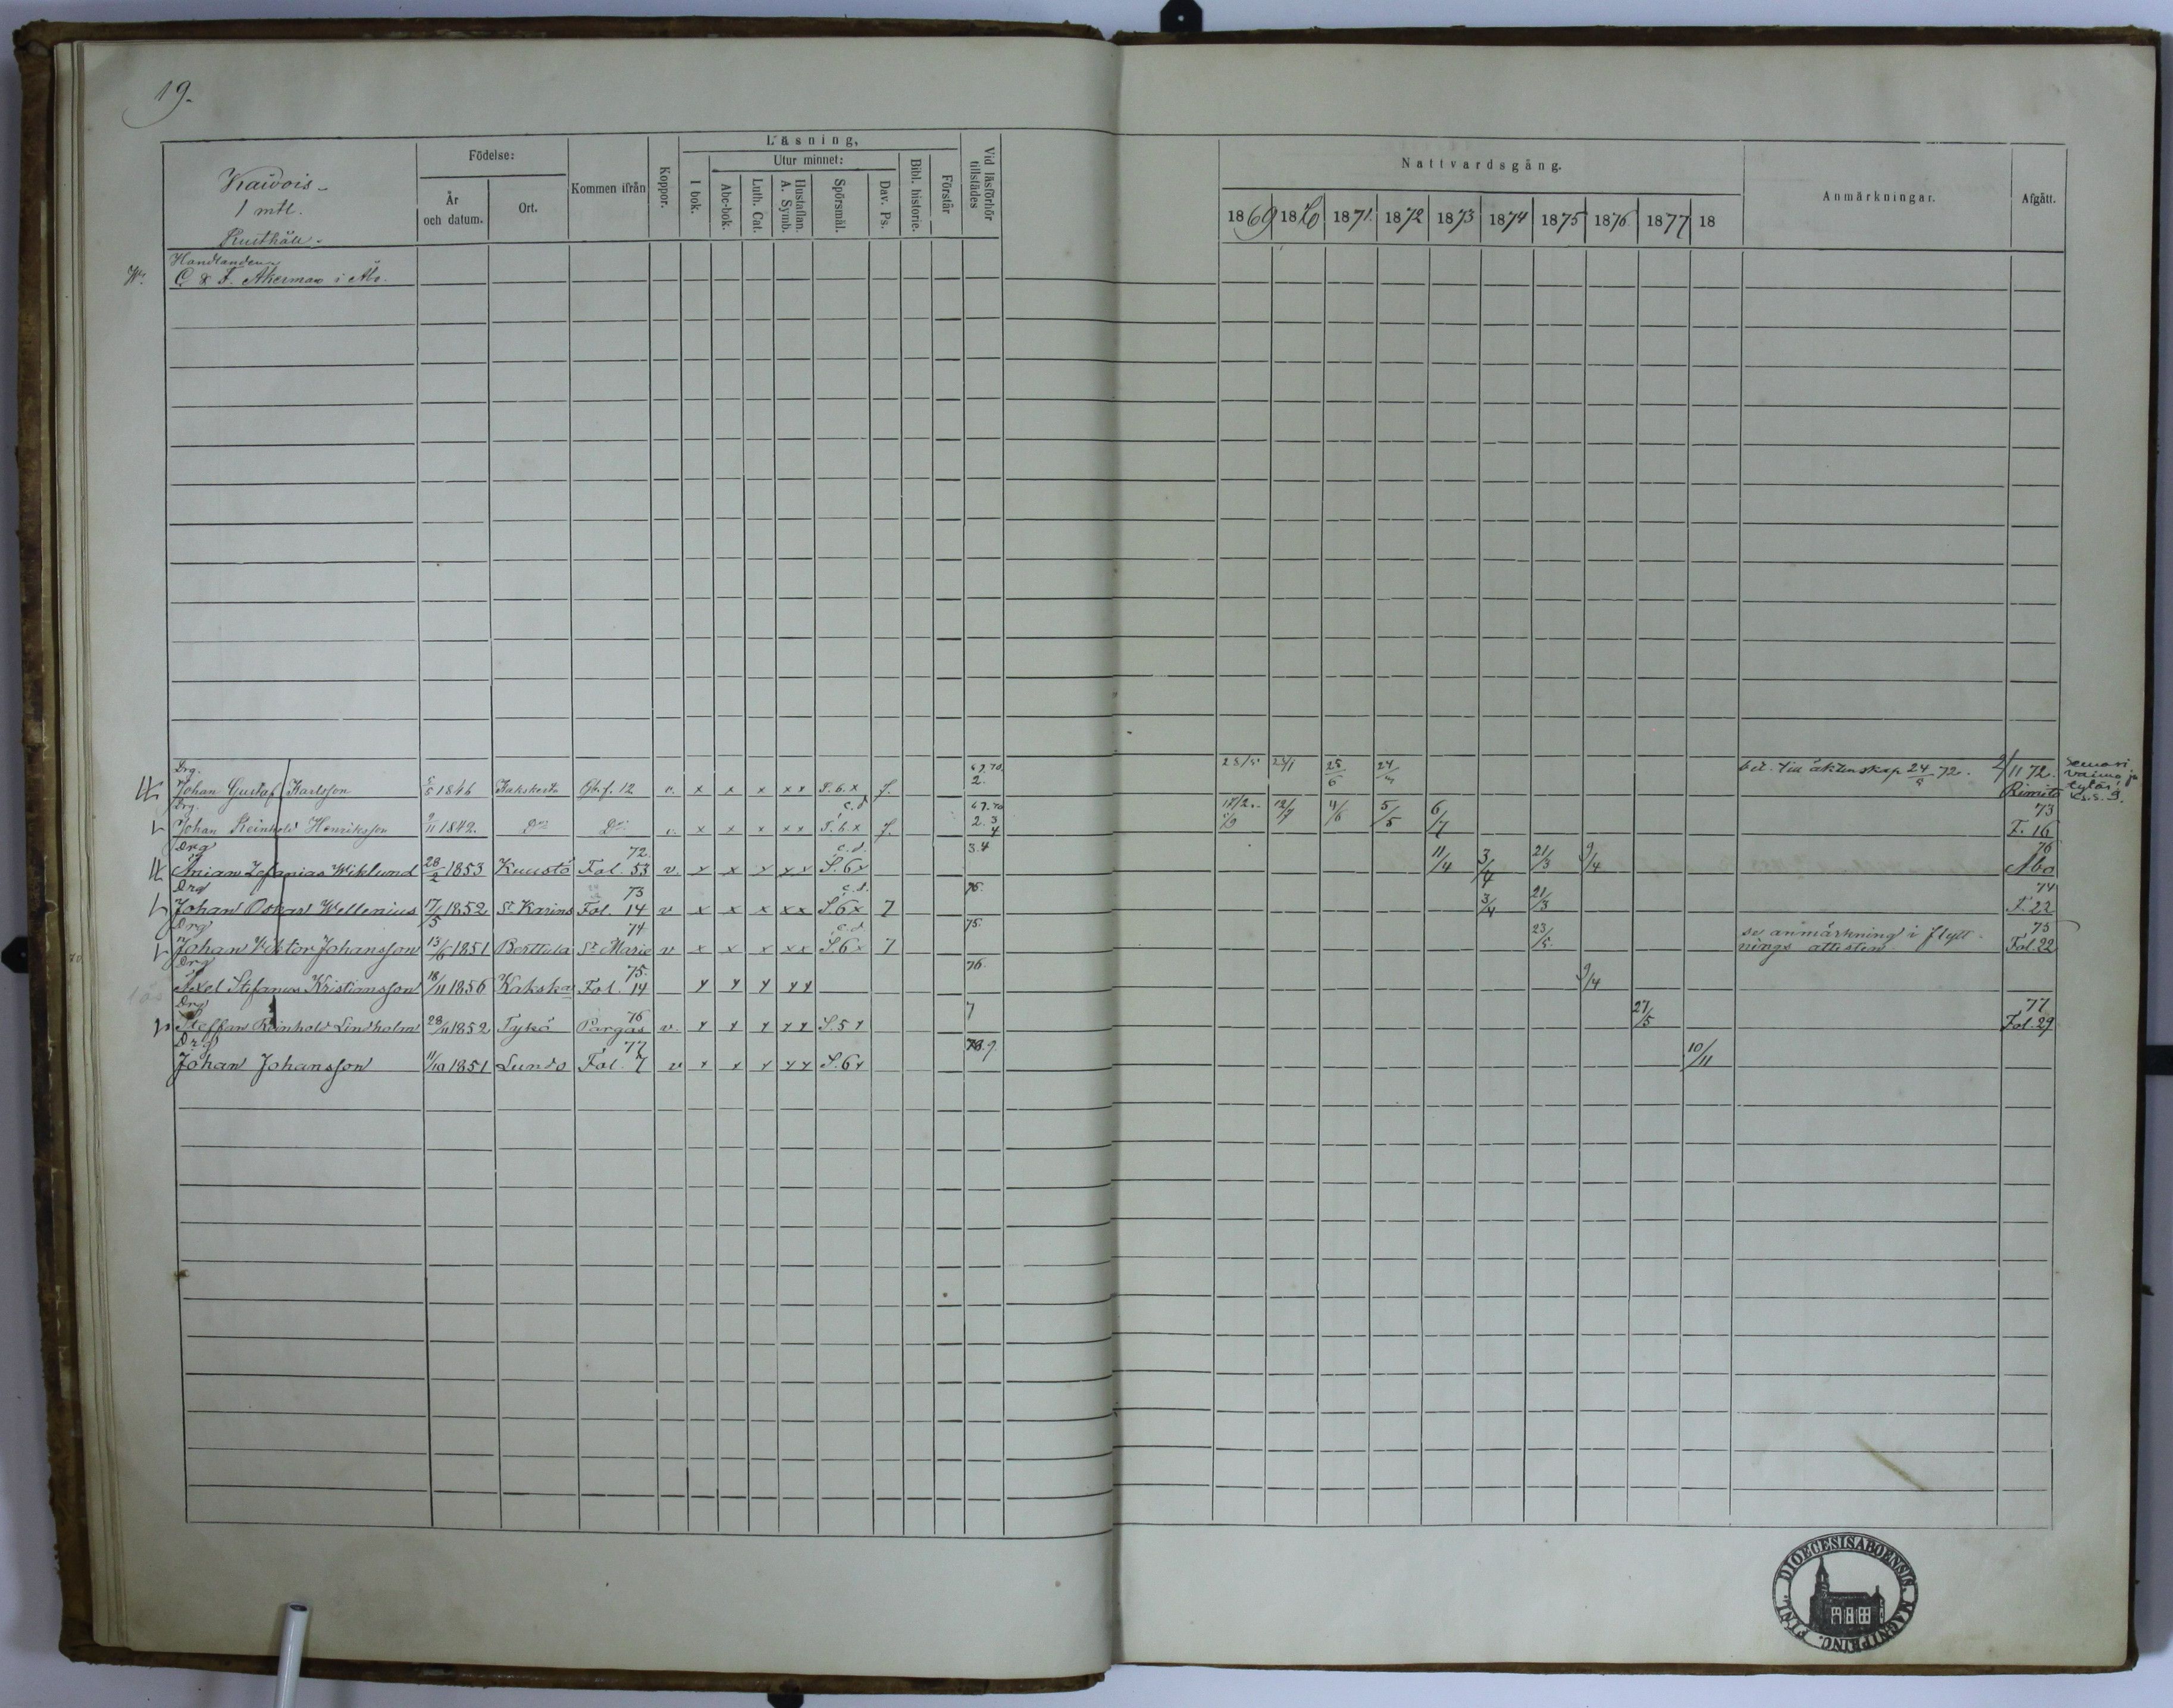 19.
Kaivois
1 mtl.
Rusthåll.
Födelse:
År och datum.
Ort.
Kommen ifrån
Koppor.
Läsning,
I bok.
Utur minnet:
Abc-bok.
Luth. Cat.
Hustaflan. A. Symb.
Spörsmål.
Dav. Ps.
Bibl. historie.
Förstår
Vid läsförhör tillstädes
Nattvardsgång.
1869 1870 1871. 1872 1873 1874 1875 1876 1877 18
Anmärkningar.
Afgått.
Handlanden
C & F. Åkerman i Åbo.
Drg.
Johan Gustaf Karlsson 1846 Kakskerta Gbf. 12 v. x x x x x F. 6. x 7. 69.70. 2. 25/6 bet. till äktenskap 24/8 72. 2/11 72. Rimito
Drg.
Johan Reinhold Henriksson 9/11 1842. Do Do v. x x x x x c.d. F. 6 x 7. 69.70 2.3 4 12/7 4/6 5/5 6/7 73 F. 16
Drg
Anian Zefanias Wiklund 28/2 1853 Kuustö 72. Fol. 53 v. x x x x x c.d. S. 6x 3.4 11/4 3/4 21/3 9/4 76 Åbo
Drg
Johan Oskar Wellenius 17/5 1852 St Karins 73 Fol. 14 v x x x x x c.d. S. 6x 7 75. 3/4 21/3 74 F. 22
Drg
Johan Viktor Johansson 13/6 1851 Berttula 74. St Marie v x x x x x c.d. S. 6x 7 75. 23/5. se anmärkning i flytt- 75
nings attesten Fol. 22
Drg
Axel Stefanus Kristiansson 18/11 1856 Kakska 75. Fol. 14 x x x x x 76. 9/4
Drg
Steffan Reinhold Lindholm 28/11 1852 Tykö 76 Pargas v. x x x x x S. 5 x 7 27/5 77 Fol. 29
Drg
Johan Johansson 11/10 1851 Lundo 77 Fol. 7 v x x x x x S. 6x 78.9. 10/11
DIOECESIS ABOENSIS. MAGNI PRINC. FINL.